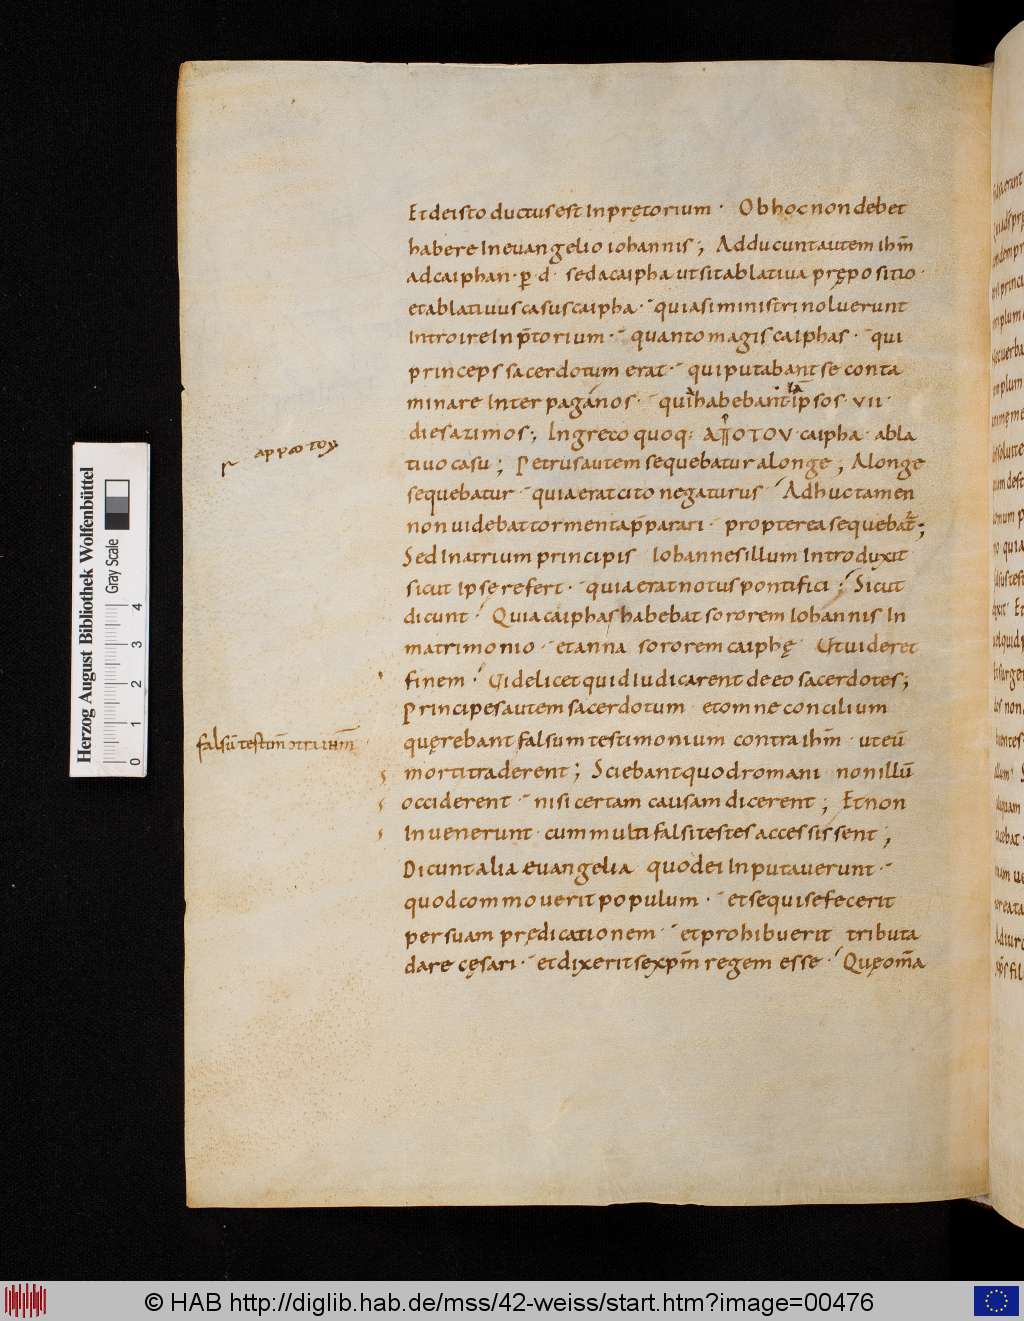 Et de isto ductus est In pretorium · Ob hoc non debet
habere In euangelio iohannis ; Adducunt autem ihm̄
ad caiphan · p̱ · d · sed a caipha ut sit ablatiua prępositio ·
et ablatiuus casus caipha · quia si ministri noluerunt
Introire In p̄torium · quanto magis caiphas · qui
princeps sacerdotum erat · qui putabant se conta
minare Inter paganos · habebant ipsos · VII ·
dies azimos ; In greco quoq: ΑΠΟ ΤΟΥ · caipha · abla
tiuo casu ; Petrus autem sequebatur a longe ; A longe
sequebatur · quia erat cito negaturus · Adhuc tamen
non uidebat torment apparari · propterea sequebat̄ ;
Sed In atrium principis Iohannes illum Introduxit
sicut Ipse refert · quia erat notus pontifici ; Sicut
dicunt · Quia caiphas habebat sororem Iohannis In
matrimonio · et anna sororem caiphę Ut uideret
finem · Uidelicet quid Iudicarent de eo sacerdotes ;
Principes autem sacerdotum et omne concilium
quęrebant falsum testimonium contra ihm̄ · ut eū
morti traderent ; Sciebant quod romani non illū
occiderent · nisi certam causam dicerent ; Et non
Inuenerunt · cum multi falsi testes accessissent ;
Dicunt alia euangelia quod ei Inputauerunt ·
quod commouerit populum · et sequi se fecerit
per suam prędicationem · et prohibuerit tributa
dare cęsari · et dixerit se xpm̄ regem esse · Quę om̄a
falsū testim̄
Herzog August Bibliothek Wolfenbüttel
Gray Scale
0 1 2 3 4
© HAB http://diglib.hab.de/mss/42-weiss/start.htm?image=00476